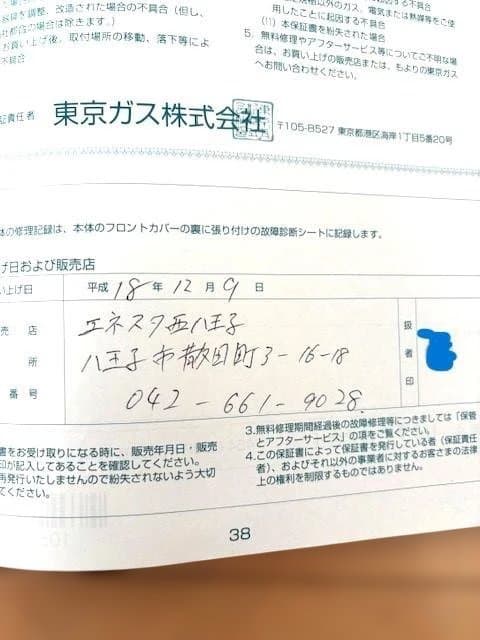 器具を調整、改造された場合の不具合(但し、
社都合の場合は除きます。)
お買い上げ後、取付場所の移動、落下等によ
不具合
規格以外のガス、電気または熱媒等をご使
用したことに起因する不具合
(11) 本保証書を紛失された場合
5. 無料修理やアフターサービス等についてご不明な場
合は、お買い上げの販売店または、もよりの東京ガス
へお問い合わせください。
証責任者 東京ガス株式会社 〒105-8527 東京都港区海岸1丁目5番20号
体の修理記録は、本体のフロントカバーの裏に張り付けの故障診断シートに記録します。
げ日および販売店
い上げ日 平成 18 年 12 月 9 日
売店 エネスタ西八王子
所 八王子市散田町3-16-18
番号 042-661-9028
扱者印
書をお受け取りになる時に、販売年月日・販売
印が記入してあることを確認してください。
再発行いたしませんので紛失されないよう大切
てください。
3.無料修理期間経過後の故障修理等につきましては「保管
とアフターサービス」の項をご覧ください。
4.この保証書によって保証書を発行している者(保証責任
者)、およびそれ以外の事業者に対するお客さまの法律
上の権利を制限するものではありません。
38